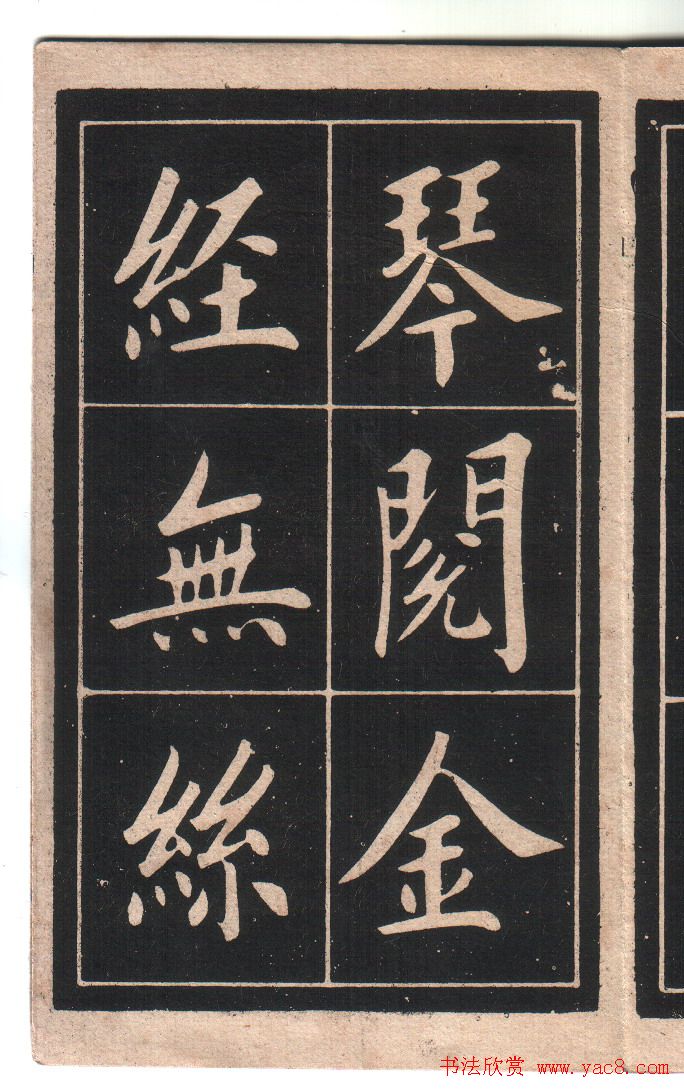 琴閱金
経無絲
书法欣赏 www.yac8.com